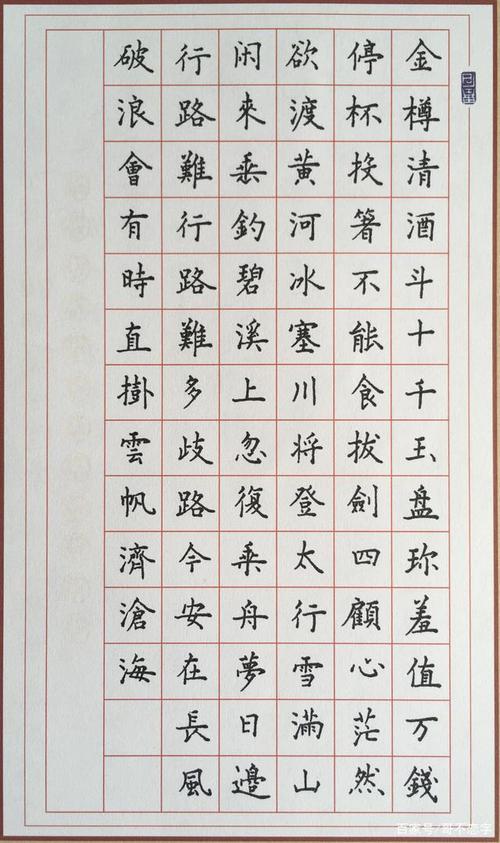 金樽清酒斗十千玉盘珎羞值万錢
停杯投箸不能食拔劍四顧心茫然
欲渡黄河冰塞川将登太行雪滿山
闲來垂釣碧溪上忽復乗舟夢日邊
行路難行路難多歧路今安在長風
破浪會有時直掛雲帆濟滄海
百家号/